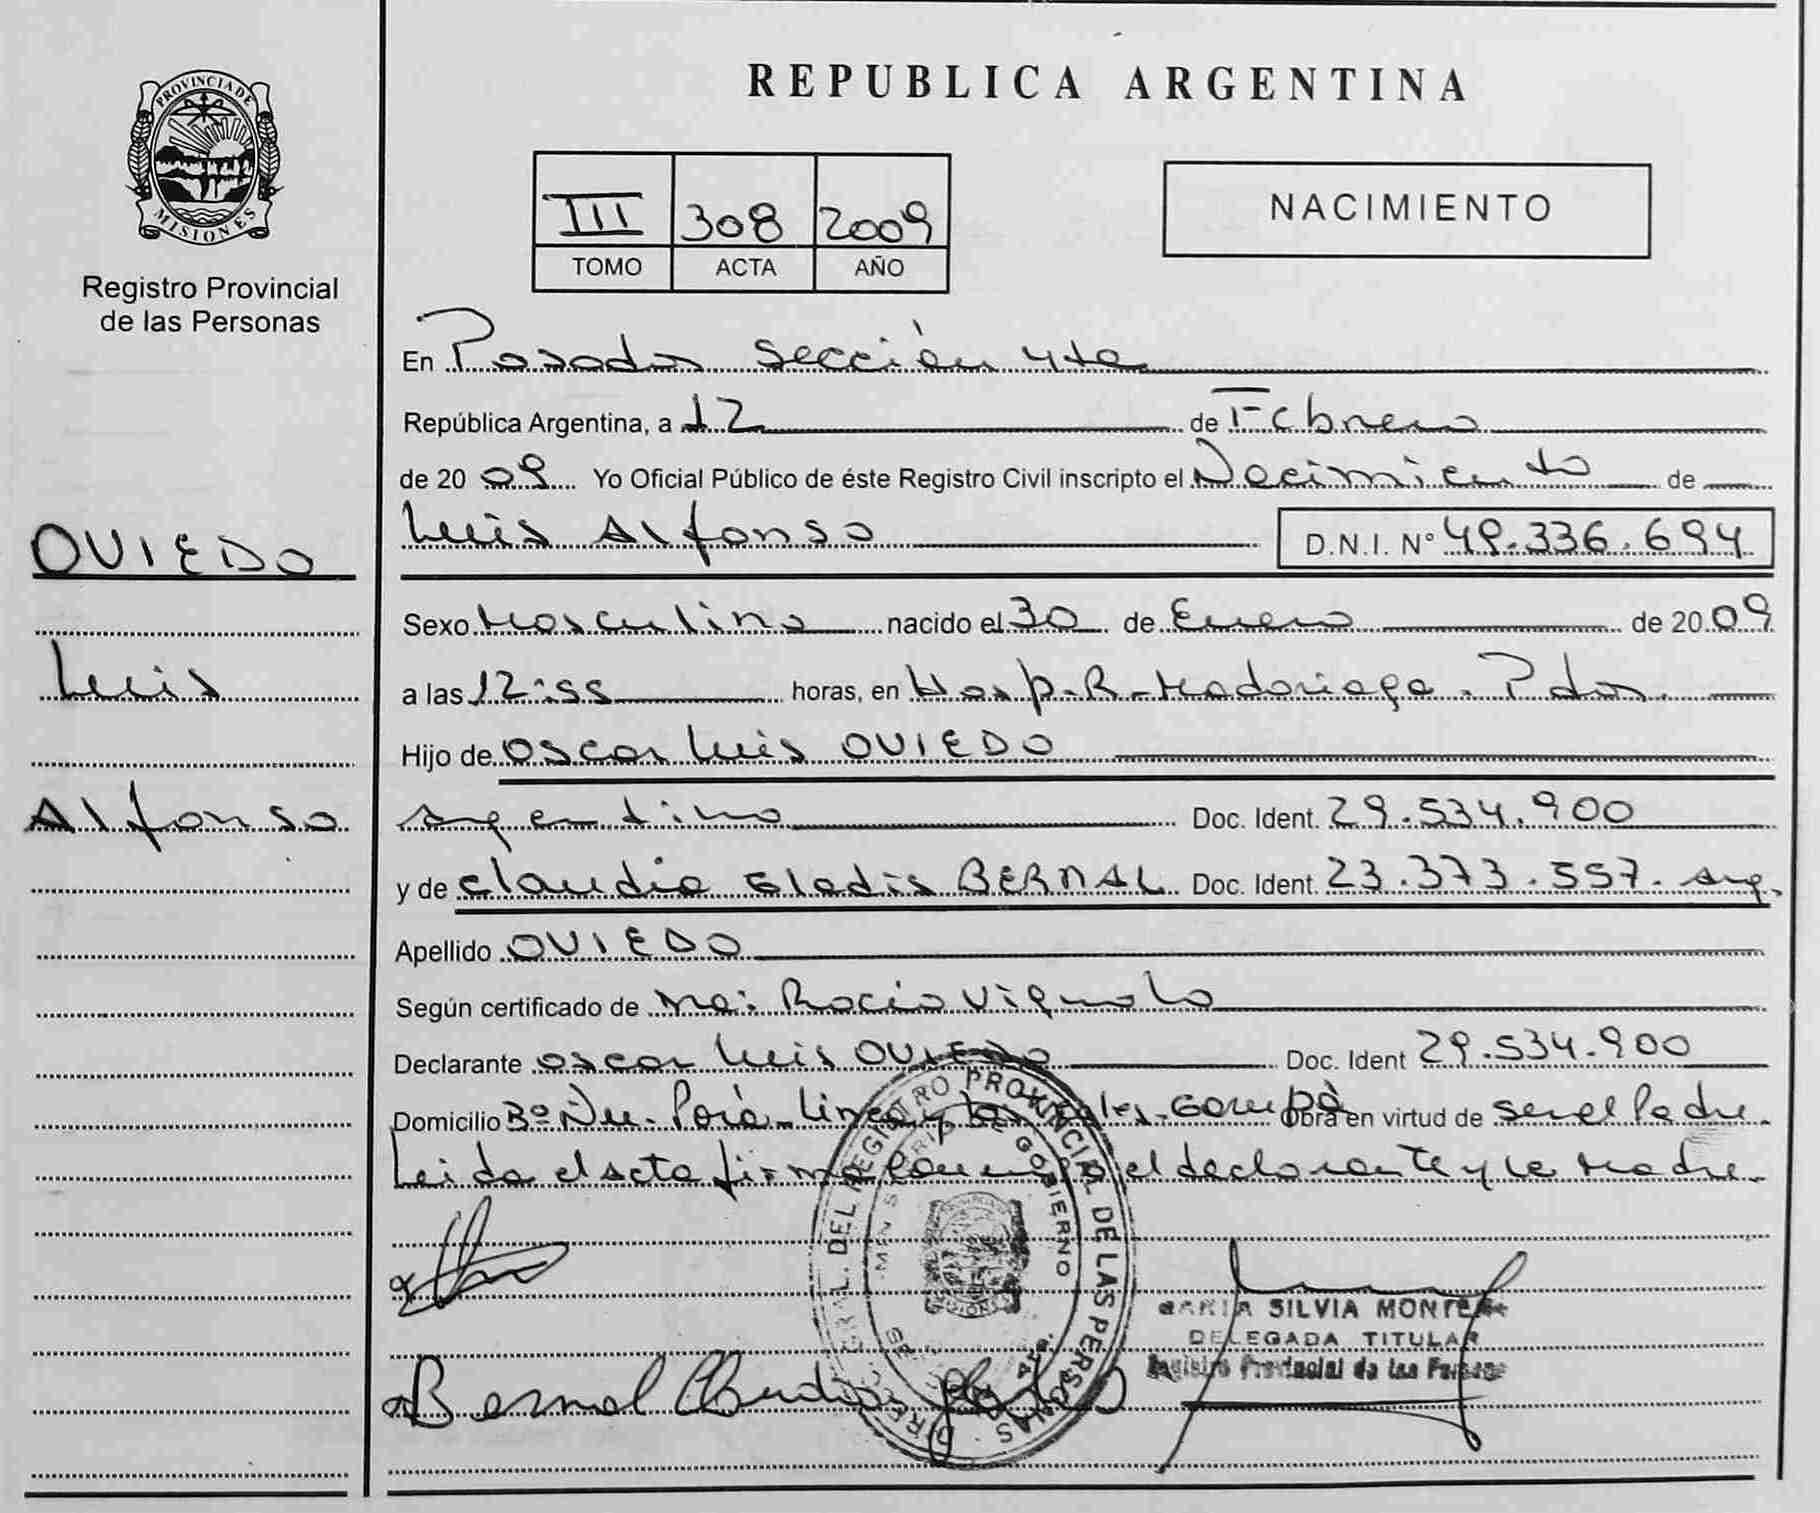 PROVINCIA DE
MISIONES
Registro Provincial
de las Personas
OVIEDO
Luis
Alfonso
REPUBLICA ARGENTINA
III 308 2009
TOMO ACTA AÑO
NACIMIENTO
En Posadas sección 4ta
República Argentina, a 12 de Febrero
de 20 09 Yo Oficial Público de éste Registro Civil inscripto el Nacimiento de
Luis Alfonso D.N.I. N° 49.336.694
Sexo Masculino nacido el 30 de Enero de 20 09
a las 12:55 horas, en Hosp. R. Madariaga. Pdas.
Hijo de Oscar Luis OVIEDO
argentino Doc. Ident. 29.534.900
y de Claudia Gladis BERNAL Doc. Ident. 23.373.557. arg.
Apellido OVIEDO
Según certificado de Rocío Vignolo
Declarante Oscar Luis OVIEDO Doc. Ident 29.534.900
Domicilio B° Ñu. Porá. Garupá Obra en virtud de ser el Padre.
Leida el acta firma conmigo el declarante y la Madre.
REGISTRO PROVINCIAL DE LAS PERSONAS
GOBIERNO
MARIA SILVIA
DELEGADA TITULAR
Registro Provincial de las Personas
Bernal Claudia